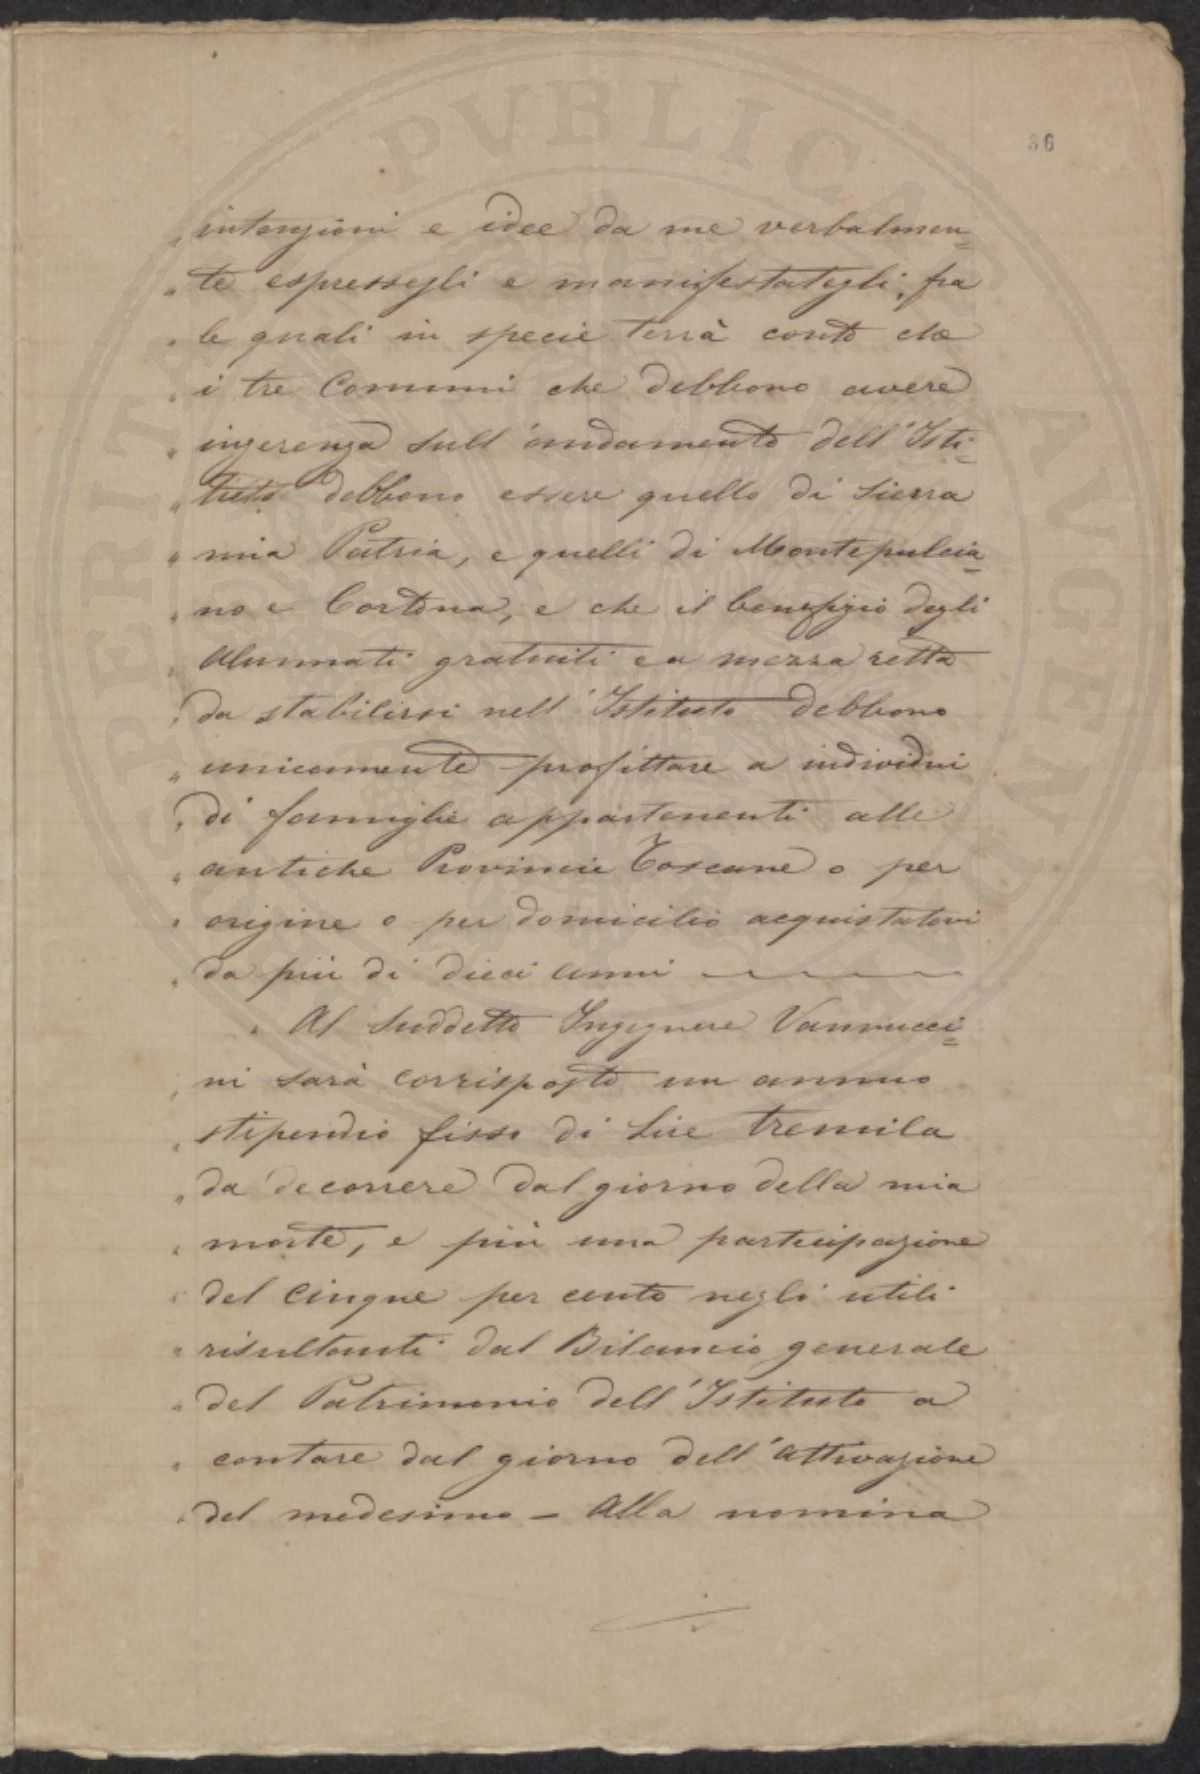 36
" intenzioni e idee da me verbalmen=
" te espressegli e manifestategli, fra
" le quali in specie terrà conto che
" i tre Comuni che debbono avere
" ingerenza sull'andamento dell'Isti=
" tuto debbono essere quello di Siena
" mia Patria, e quelli di Montepulcia=
" no e Cortona, e che il benefizio degli
" Alunnati gratuiti e a mezza retta
" da stabilirsi nell'Istituto debbono
" unicamente profittare a individui
" di famiglie appartenenti alle
" antiche Provincie Toscane o per
" origine o per domicilio acquistatovi
" da più di dieci anni
" Al suddetto Ingegnere Vannucci=
" ni sarà corrisposto un annuo
" stipendio fisso di Lire tremila
" da decorrere dal giorno della mia
" morte, e più una partecipazione
" del cinque per cento negli utili
" risultanti dal Bilancio generale
" del Patrimonio dell'Istituto a
" contare dal giorno dell'attivazione
" del medesimo – Alla nomina